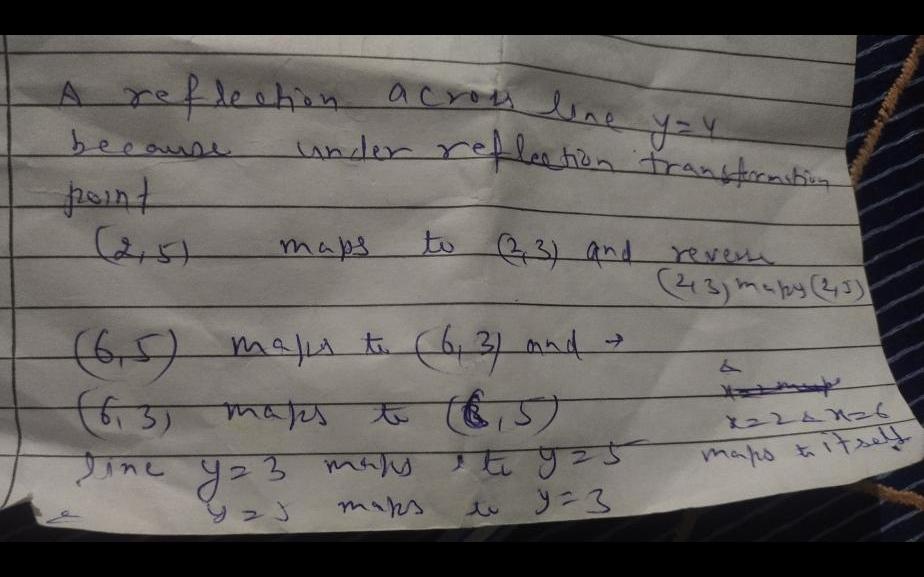 A reflection across line y=4
because under reflection transformation
point
(2,5) maps to (2,3) and reverse
(2,3) maps (2,5)
(6,5) maps to (6,3) and →
(6,3) maps to (6,5)
&
x=2 & x=6
maps to itself
line y=3 maps to y=5
& y=5 maps to y=3